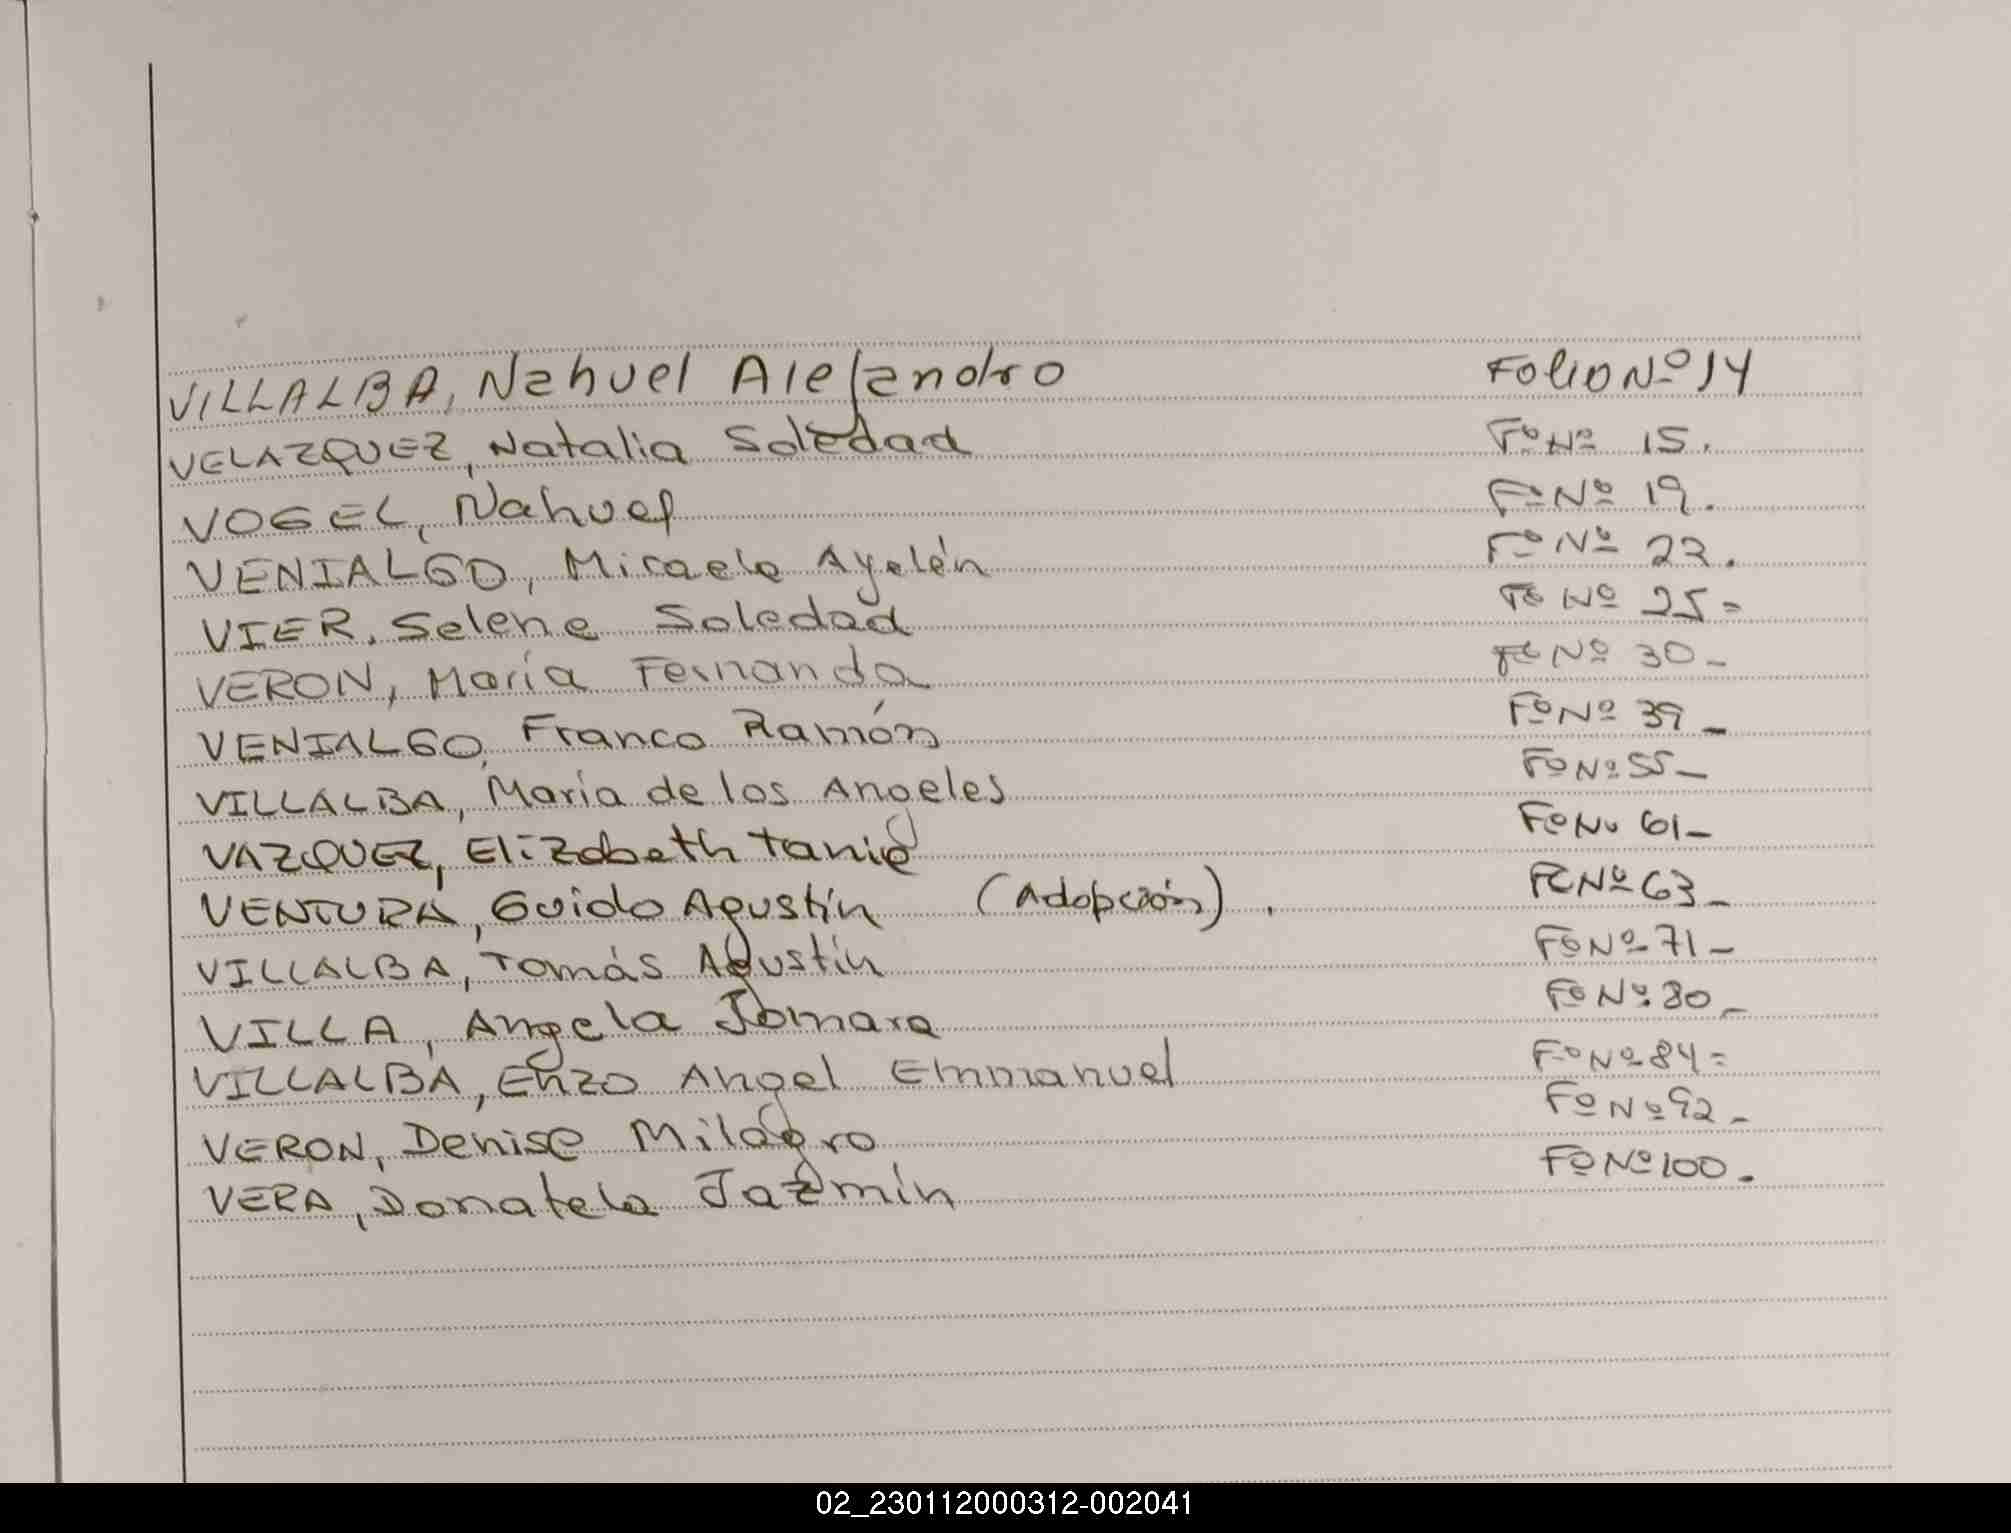 VILLALBA, Nahuel Alejandro FOLIO Nº 14
VELAZQUEZ, Natalia Soledad Fº Nº 15.
VOGEL, Nahuel Fº Nº 19.
VENIALGO, Micaela Ayelén Fº Nº 22.
VIER, Selene Soledad Fº Nº 25=
VERON, María Fernanda Fº Nº 30-
VENIALGO, Franco Ramón Fº Nº 39-
VILLALBA, María de los Angeles Fº Nº 55-
VAZQUEZ, Elizabeth Tania Fº Nº 61-
VENTURA, Guido Agustín (Adopción). Fº Nº 63-
VILLALBA, Tomás Agustín Fº Nº 71-
VILLA, Angela Jomara Fº Nº 80-
VILLALBA, Enzo Angel Emmanuel Fº Nº 84=
VERON, Denise Milagro Fº Nº 92-
VERA, Donatela Jazmín Fº Nº 100.
02_230112000312-002041